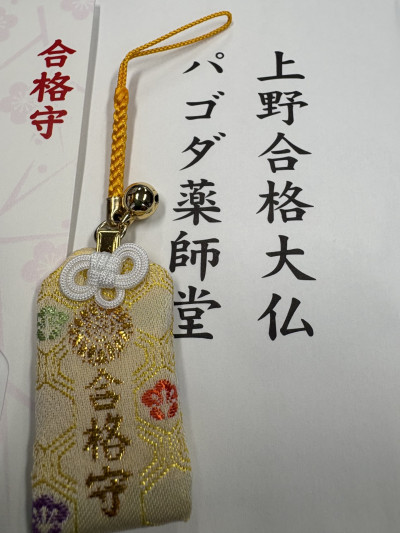 上野合格大仏
パゴダ薬師堂
合格守
合格守